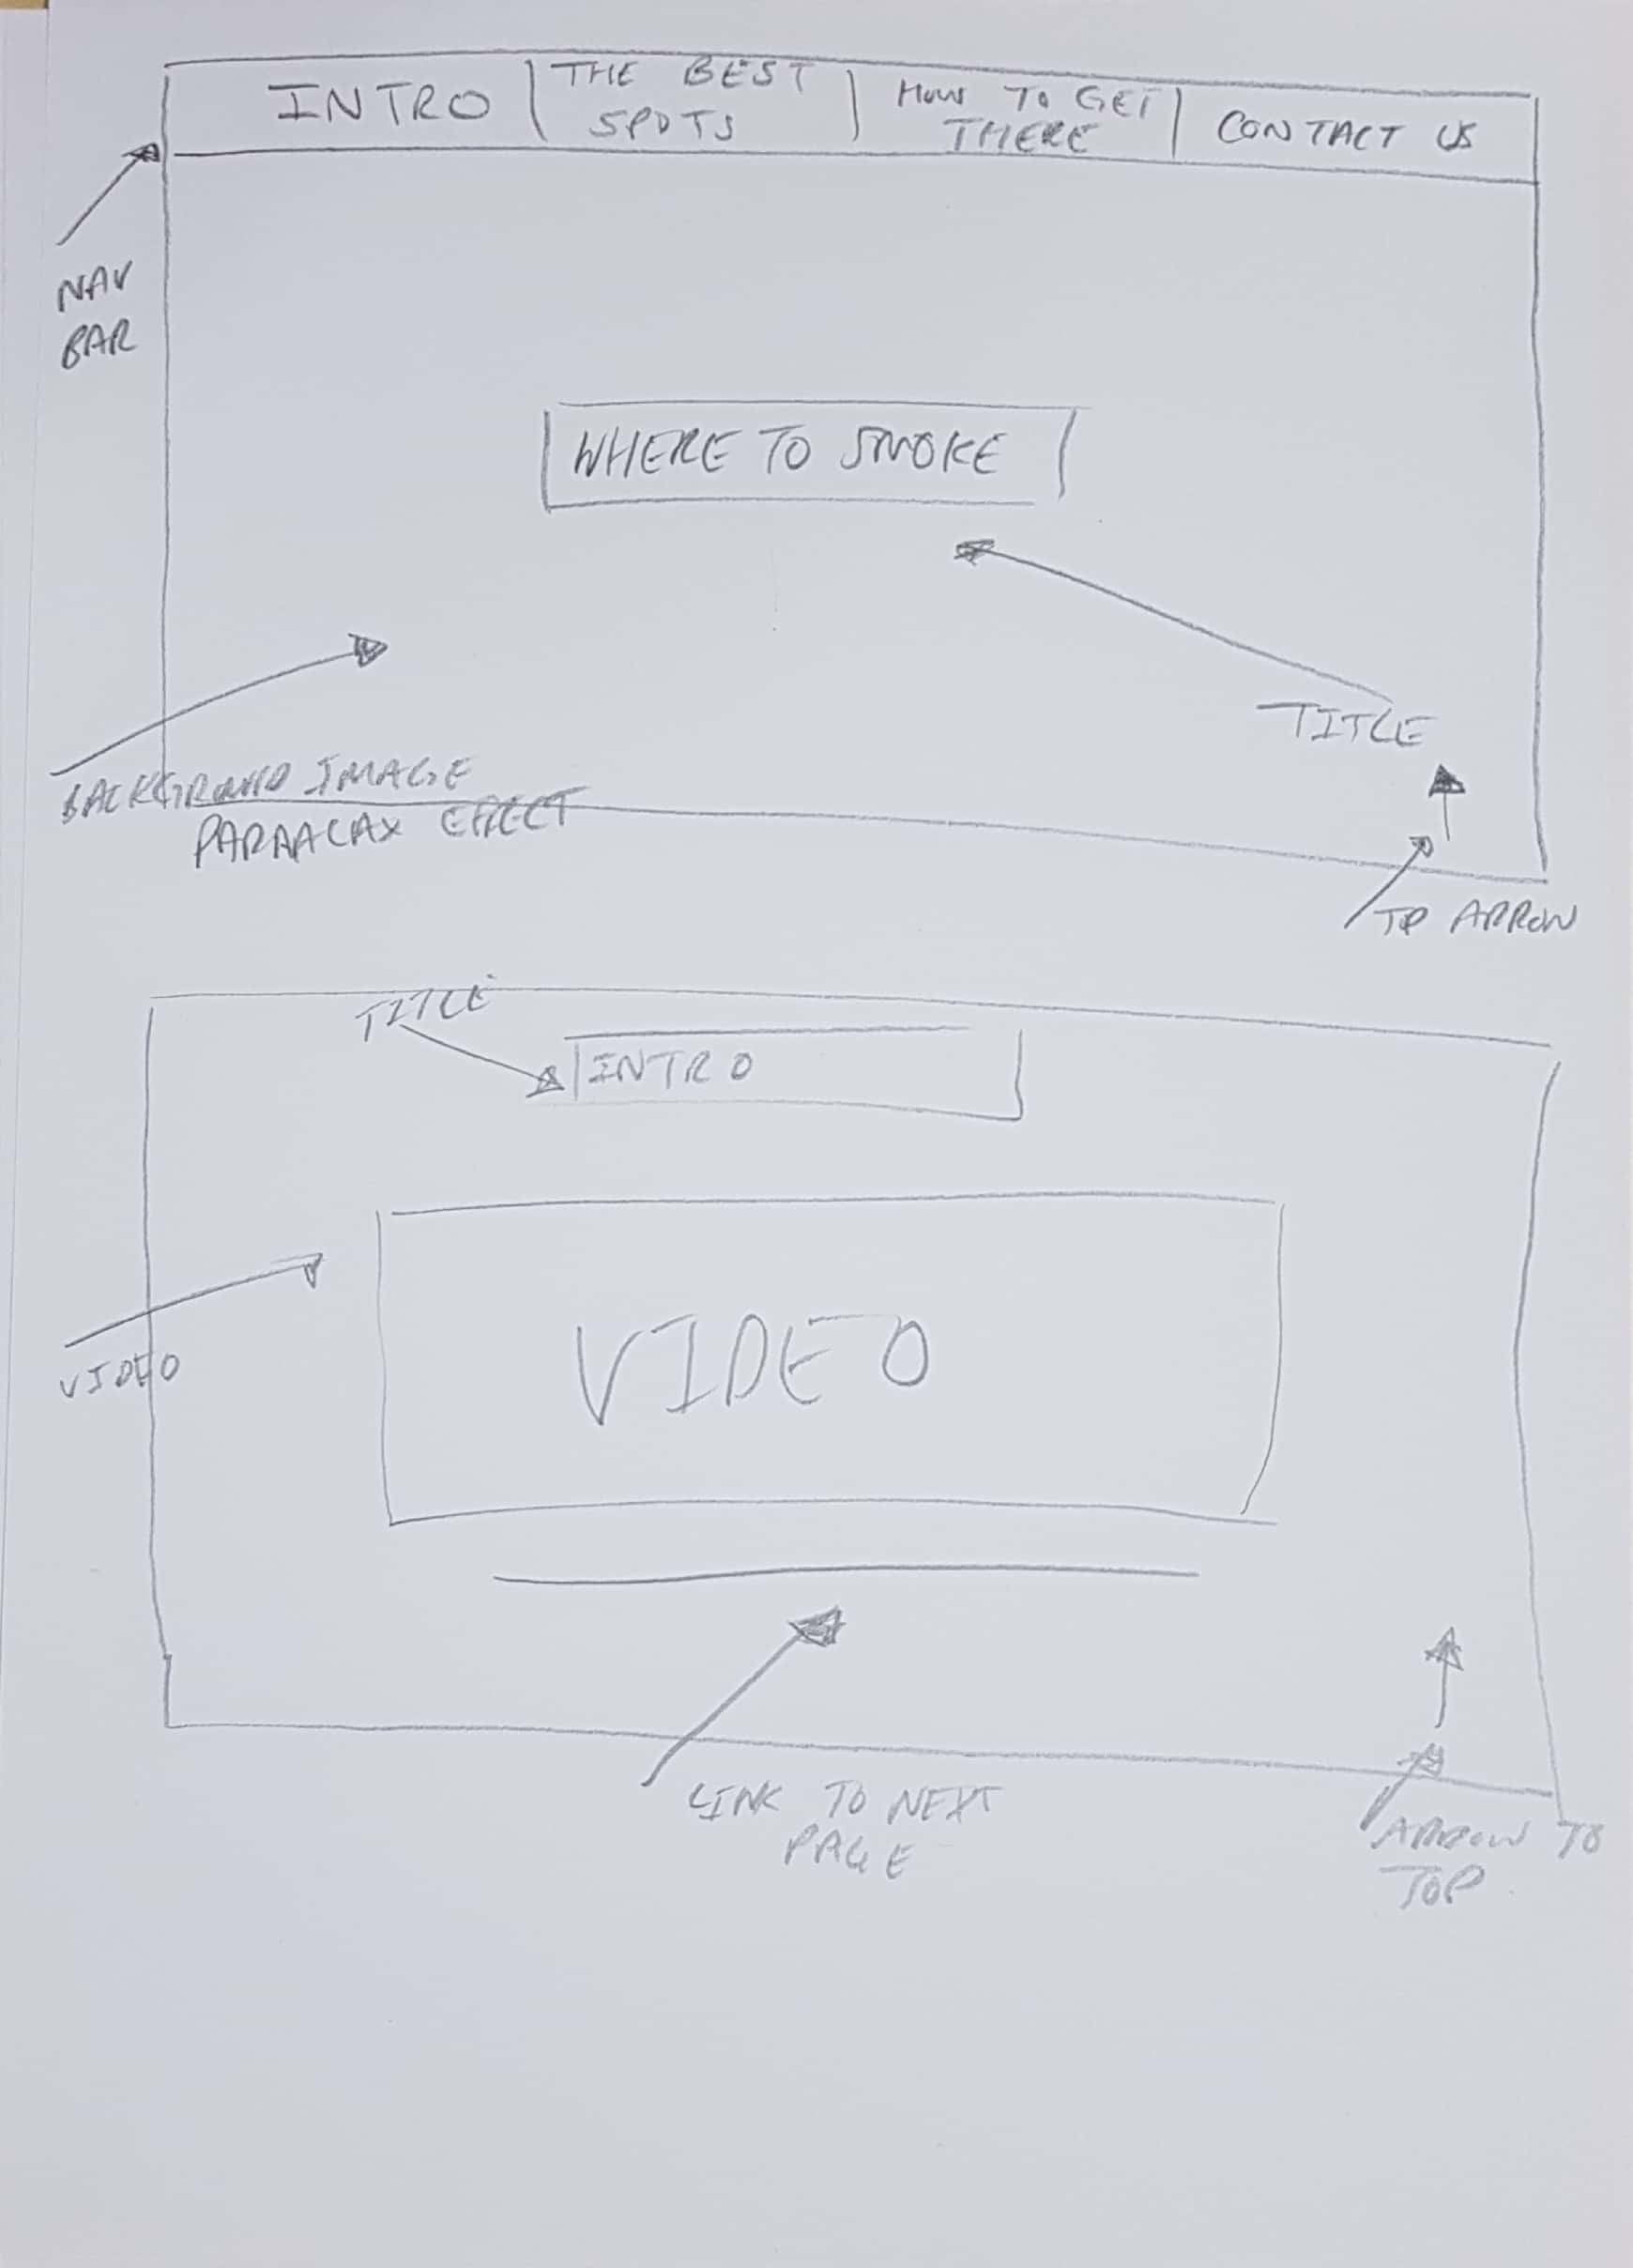 INTRO
THE BEST
SPOTS
HOW TO GET
THERE
CONTACT US
NAV
BAR
WHERE TO SMOKE
TITLE
BACKGROUND IMAGE
PARAALAX EFFECT
ARROW
TITLE
INTRO
VIDEO
VIDEO
LINK TO NEXT
PAGE
ARROW TO
TOP